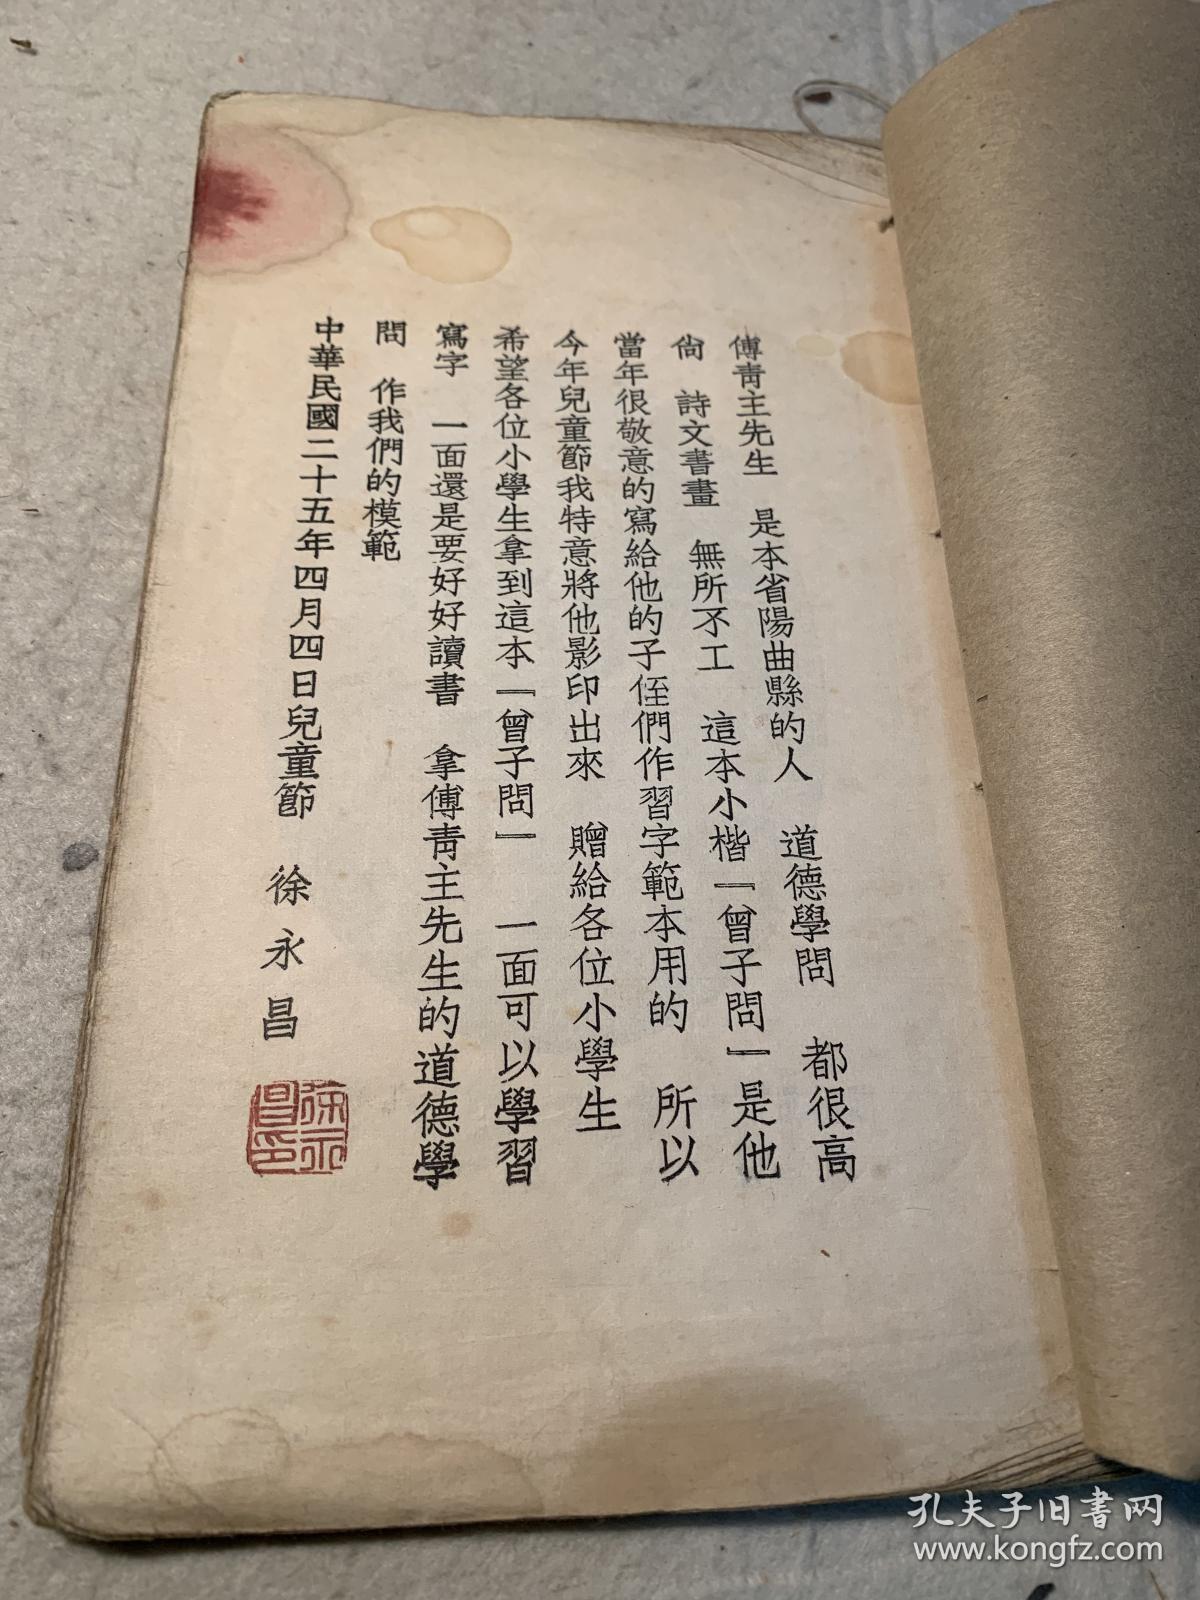 傅靑主先生　是本省陽曲縣的人　道德學問　都很高
尙　詩文書畫　無所不工　這本小楷『曾子問』是他
當年很敬意的寫給他的子侄們作習字範本用的　所以
今年兒童節我特意將他影印出來　贈給各位小學生
希望各位小學生拿到這本『曾子問』　一面可以學習
寫字　一面還是要好好讀書　拿傅靑主先生的道德學
問　作我們的模範
中華民國二十五年四月四日兒童節　徐永昌
徐永昌印
孔夫子旧书网
www.kongfz.com